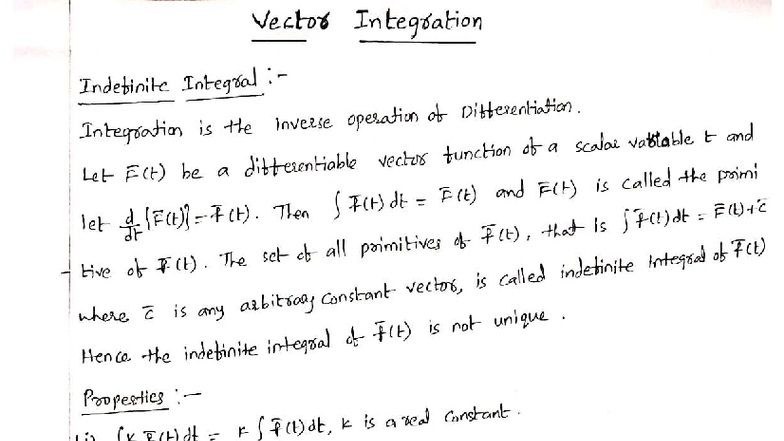 Vector Integration
Indefinite Integral :-
Integration is the inverse operation of Differentiation.
Let F̄(t) be a differentiable vector function of a scalar variable t and
let d/dt {F̄(t)} = f̄(t). Then ∫ f̄(t) dt = F̄(t) and F̄(t) is called the primi
- tive of f̄(t). The set of all primitives of f̄(t), that is ∫ f̄(t) dt = F̄(t) + c̄
where c̄ is any arbitrary constant vector, is called indefinite integral of f̄(t)
Hence the indefinite integral of f̄(t) is not unique.
Properties :-
∫ k f̄(t) dt = k ∫ f̄(t) dt, k is a real constant.